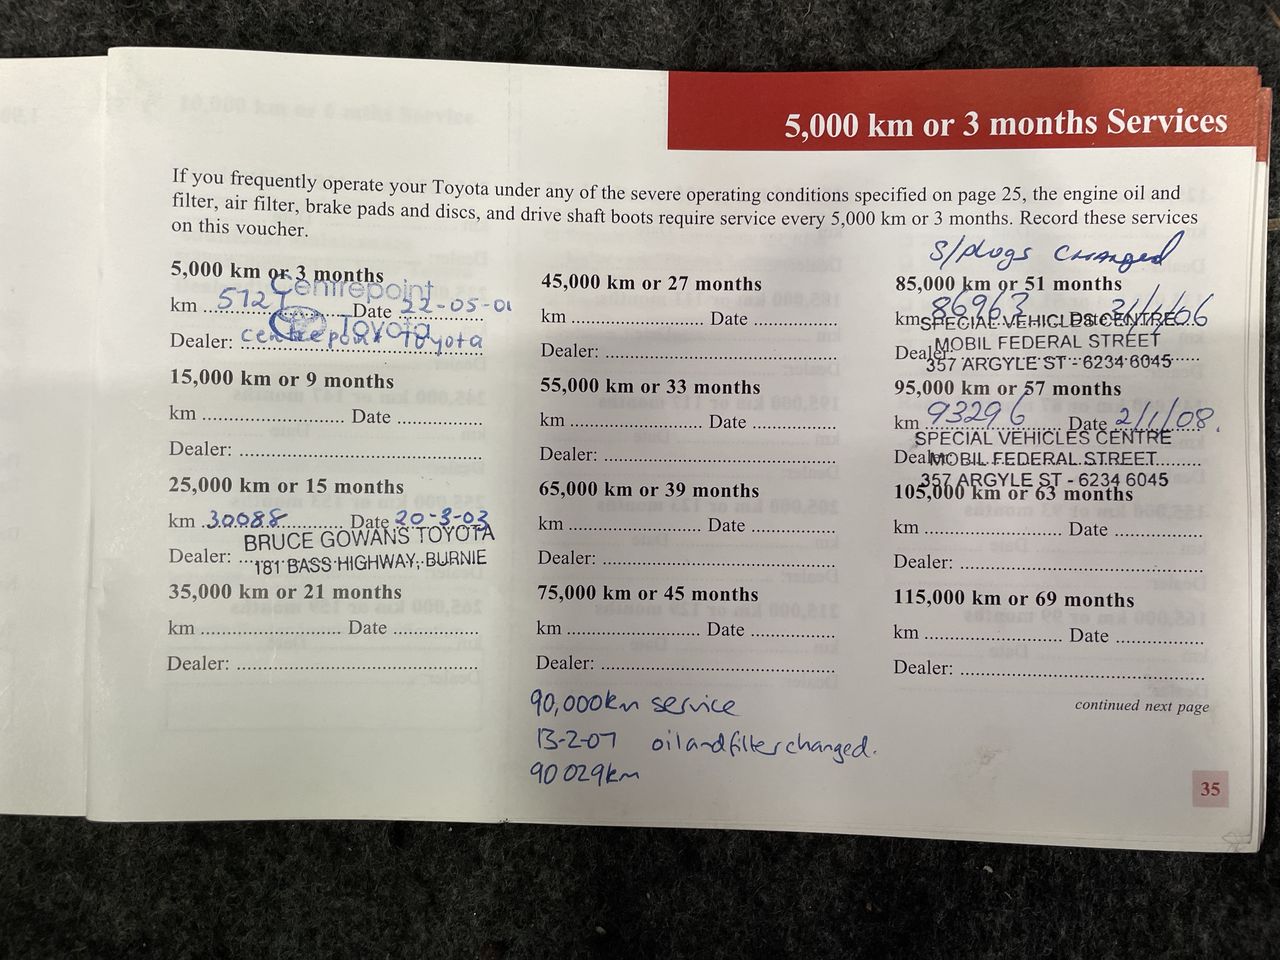 5,000 km or 3 months Services
If you frequently operate your Toyota under any of the severe operating conditions specified on page 25, the engine oil and
filter, air filter, brake pads and discs, and drive shaft boots require service every 5,000 km or 3 months. Record these services
on this voucher.
5,000 km or 3 months
Centrepoint
km 5127 Date 22-05-01
Toyota
Dealer: centrepoint Toyota
15,000 km or 9 months
km .................... Date ...............
Dealer: ..........................................
25,000 km or 15 months
km 30088 Date 20-3-03
BRUCE GOWANS TOYOTA
Dealer:
181 BASS HIGHWAY, BURNIE
35,000 km or 21 months
km .................... Date ...............
Dealer: ..........................................
45,000 km or 27 months
km .................... Date ...............
Dealer: ..........................................
55,000 km or 33 months
km .................... Date ...............
Dealer: ..........................................
65,000 km or 39 months
km .................... Date ...............
Dealer: ..........................................
75,000 km or 45 months
km .................... Date ...............
Dealer: ..........................................
90,000km service
13-2-07 oil and filter changed.
90 029km
S/plugs changed
85,000 km or 51 months
km 86963 Date /1/06
SPECIAL VEHICLES CENTRE
MOBIL FEDERAL STREET
Dealer:
357 ARGYLE ST - 6234 6045
95,000 km or 57 months
km 93296 Date 2/1/08.
SPECIAL VEHICLES CENTRE
Dealer: MOBIL FEDERAL STREET
357 ARGYLE ST - 6234 6045
105,000 km or 63 months
km .................... Date ...............
Dealer: ..........................................
115,000 km or 69 months
km .................... Date ...............
Dealer: ..........................................
continued next page
35